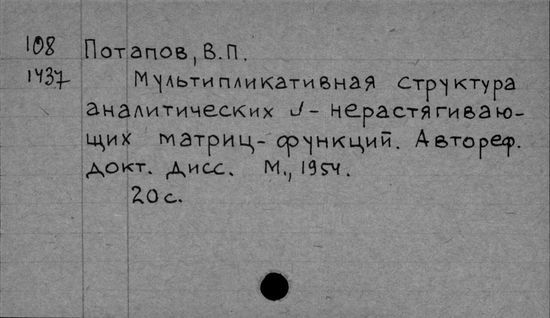 108 Потапов, В.П.
1437 Мультипликативная структура
аналитических J - нерастягиваю-
щих матриц-функций. Автореф.
докт. дисс. М., 1954.
20 с.